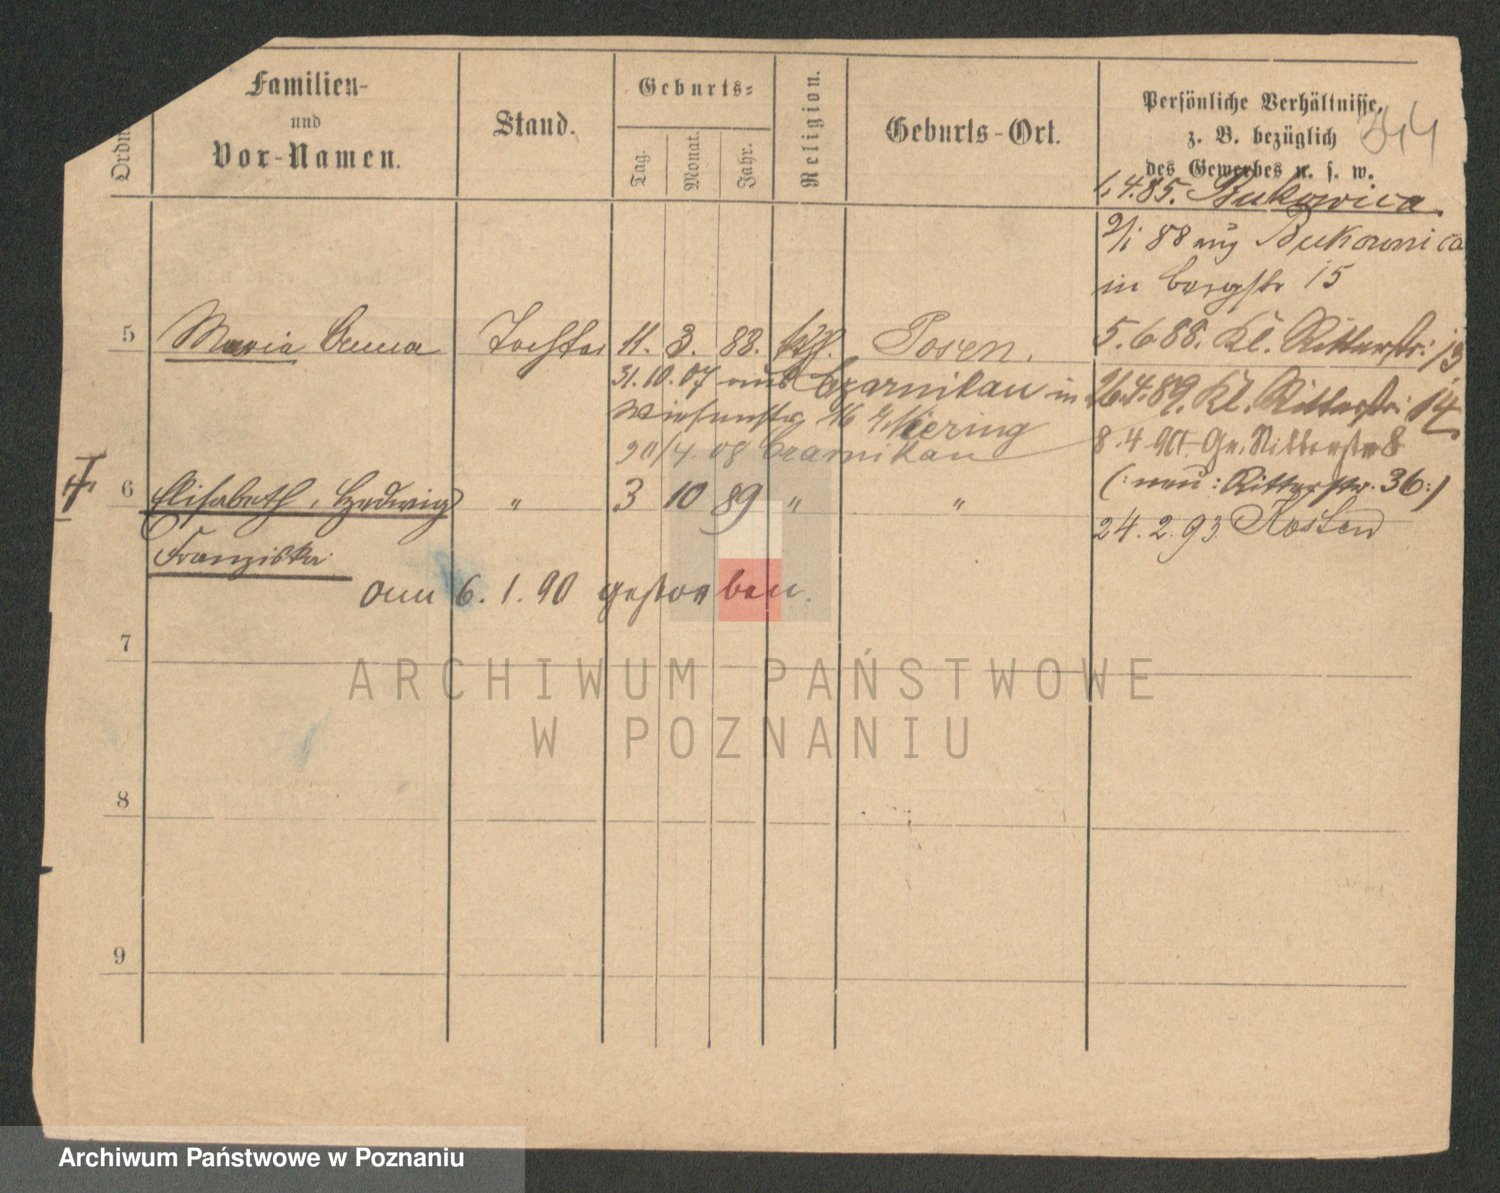 Ordn
Familien-
und
Vor-Namen.
Stand.
Geburts-
Tag.
Monat.
Jahr.
Religion.
Geburts-Ort.
Persönliche Verhältnisse,
z. B. bezüglich
des Gewerbes u. s. w.
4.85. Bukowica
2/1 88 aus Bukownica
in Bergstr 15
5 Maria Anna Tochter 11. 3. 88. kth. Posen. 5.6.88. Kl. Ritterstr: 13
31.10.07 aus Czarnikau in
26.4.89. Kl. Ritterstr: 14
Wiesenstr 16 Niering
8.4.90. Gr. Ritterstr 8
20/4 08 Czarnikau
(: neu: Ritterstr. 36:)
6 Elisabeth, Hedwig " 3 10 89 " "
24.2.93. Kosten
Franziska
am 6. 1. 90 gestorben.
7
8
9
ARCHIWUM PAŃSTWOWE
W POZNANIU
Archiwum Państwowe w Poznaniu